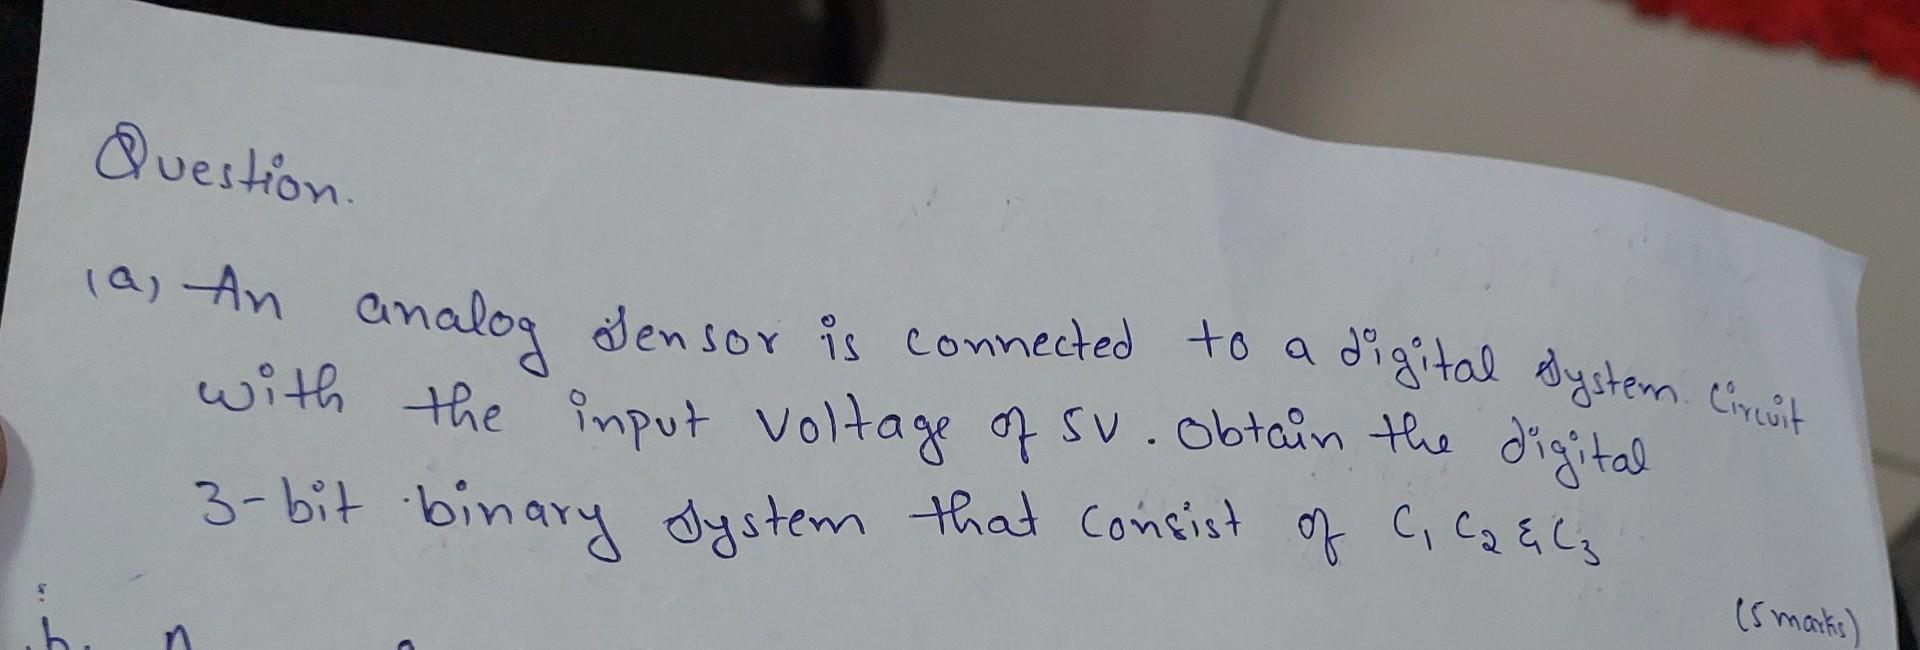 Question.
1a) An analog sensor is connected to a digital system circuit
with the input voltage of 5V. Obtain the digital
3-bit binary system that consist of C1 C2 & C3
(5 marks)